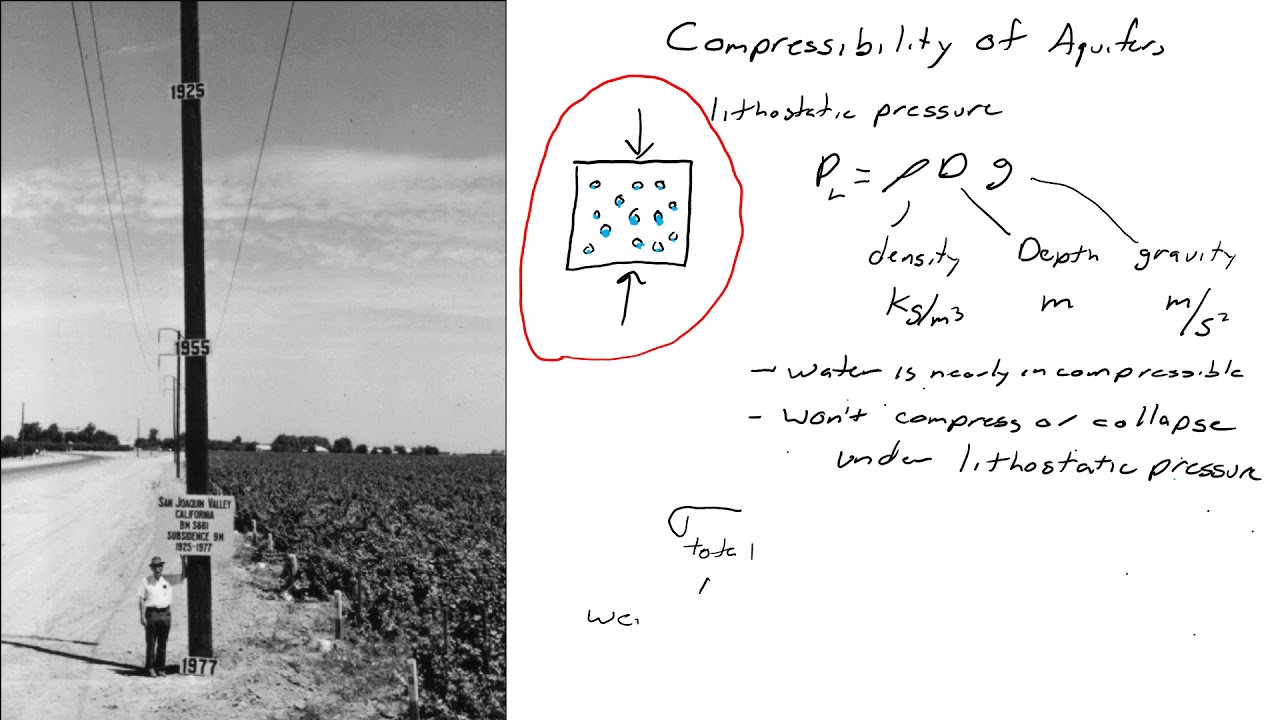 1925
1955
SAN JOAQUIN VALLEY
CALIFORNIA
BM S661
SUBSIDENCE 9M
1925-1977
1977
Compressibility of Aquifers
lithostatic pressure
P_L = ρ D g
density Depth gravity
kg/m³ m m/s²
- water is nearly incompressible
- won't compress or collapse
under lithostatic pressure
σ total